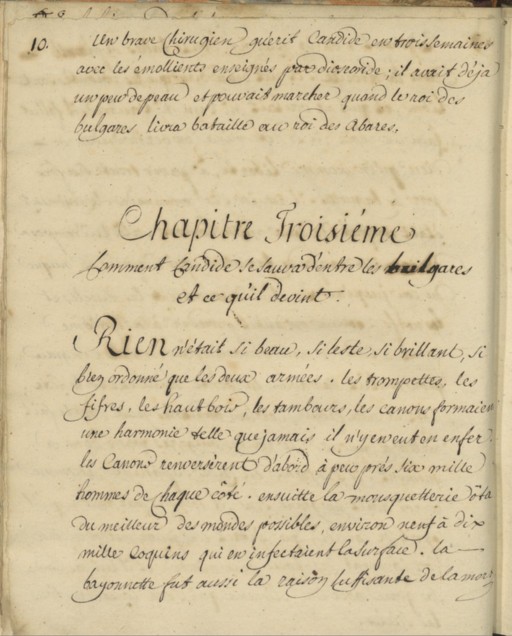 10.
Un brave Chirugien guérit Candide en trois Semaines
avec les émollients enseignés par dioscoride ; il avait déja
un peu de peau et pouvait marcher quand le roi des
bulgares livra bataille au roi des Abares.
Chapitre Troisiéme
Comment Candide se sauva d'entre les bulgares
et ce qu'il devint.
Rien n'était si beau, si leste, si brillant, si
bien ordonné que les deux armées. les trompettes, les
fifres, les hautbois, les tambours, les canons formaient
une harmonie telle que jamais il n'y en eut en enfer.
les Canons renversèrent d'abord à peu prés six mille
hommes de chaque côté. ensuitte la mousquetterie ôta
du meilleur des mondes possibles, environ neuf à dix
mille coquins qui en infectaient la surface. la
bayonnette fut aussi la raison suffisante de la mort